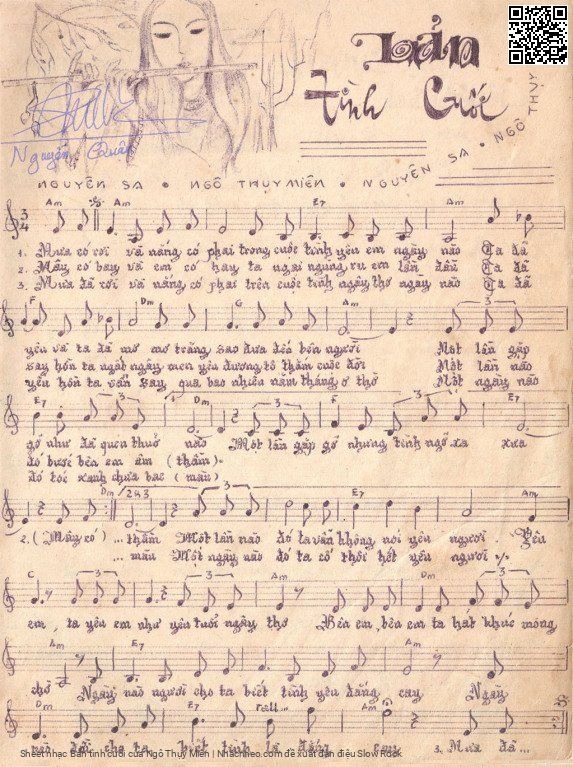 Bản
Tình Cuối
Nguyễn Quân
NGUYÊN SA • NGÔ THỤY MIÊN • NGUYÊN SA • NGÔ THỤY
Am Am E7
3/4
1. Mưa có rơi và nắng có phai trong cuộc tình yêu em ngày nào Ta đã
2. Mây có bay và em có hay ta ngại ngùng yêu em lần đầu Ta đã
3. Mưa đã rơi và nắng có phai trên cuộc tình ngây thơ ngày nào Ta đã
F Dm G Am
yêu và ta đã mơ mơ trăng sao đưa đến bên người Một lần gặp
say hồn ta ngất ngây men yêu đương tô thắm cuộc đời Một lần nào
yêu hồn ta vẫn say, qua bao nhiêu năm tháng ơ thờ Một ngày nào
E7 Dm Am E7
gỡ như đã quen thuở nào Một lần gặp gỡ nhưng tình ngỡ xa xưa
đó bước bên em êm (thầm).
đó tóc xanh chưa bạc (màu)
Dm 2+3 E7 Am
2. (Mây có) ... thầm Một lần nào đó ta vẫn không nói yêu người. Yêu
... màu Một ngày nào đó ta có thôi hết yêu người
C Am Dm Am
em, ta yêu em như yêu tuổi ngây thơ Bên em, bên em ta hát khúc mong
Am E7 Am
chờ Ngày nào người cho ta biết tình yêu đắng cay Ngày
Dm E7 rall... Am
nào đôi ta chợt biết tình là đắng cay 3. Mưa đã...
Sheet nhạc Bản tình cuối của Ngô Thụy Miên | Nhacnheo.com đề xuất đàn điệu Slow Rock